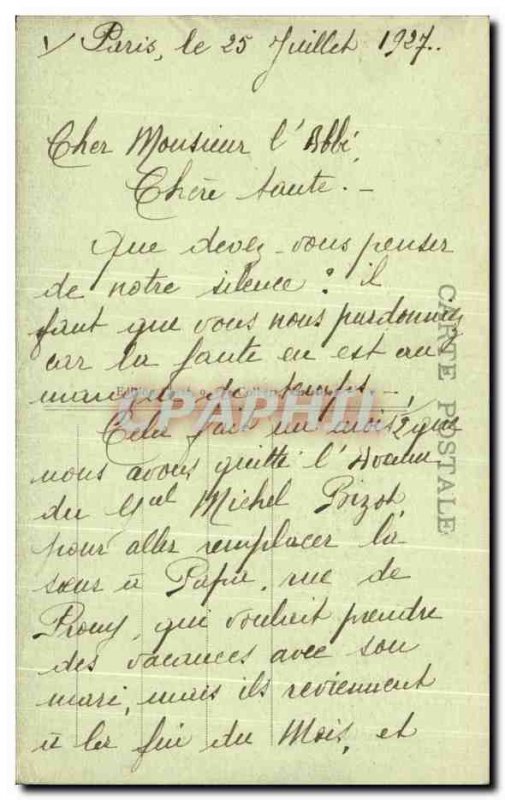 Paris, le 25 Juillet 1927.
Cher Monsieur l'Abbé,
Chère tante. -
Que devez-vous penser
de notre silence ? il
faut que vous nous pardonniez
car la faute en est au
manque de temps -
Cela fait un mois que
nous avons quitté l'Avenue
du Gal Michel Bizot,
pour aller remplacer la
sœur à Papa, rue de
Prony, qui voulait prendre
des vacances avec son
mari, mais ils reviennent
à la fin du Mois, et
CARTE POSTALE
CPAPHIL